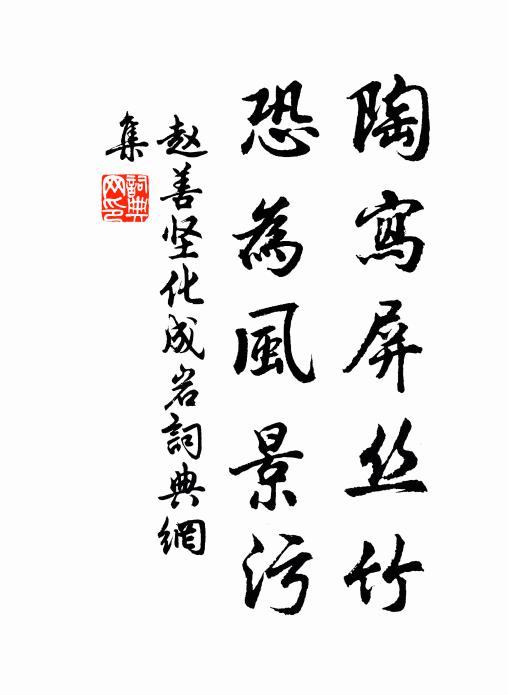 陶寫屏丝竹
恐為風景污
赵善坚化成岩詞典網
集
詞典
网印